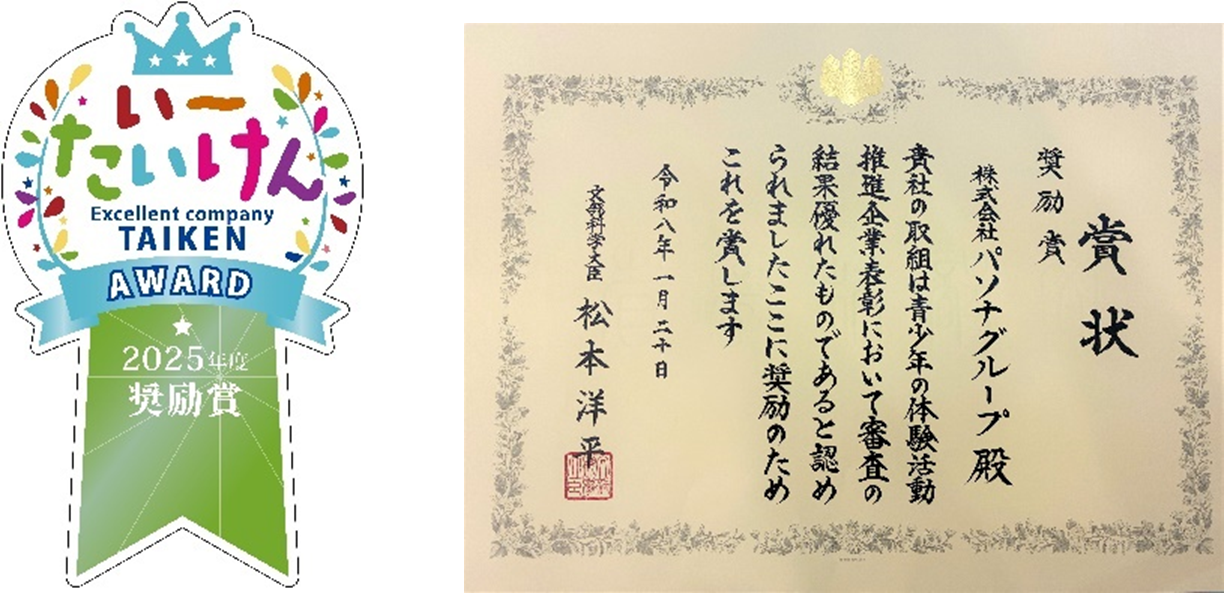 いー
たいけん
Excellent company
TAIKEN
AWARD
2025年度
奨励賞
賞状
奨励賞
株式会社パソナグループ殿
貴社の取組は青少年の体験活動
推進企業表彰において審査の
結果優れたものであると認め
られましたここに奨励のため
これを賞します
令和八年一月二十日
文部科学大臣 松本洋平